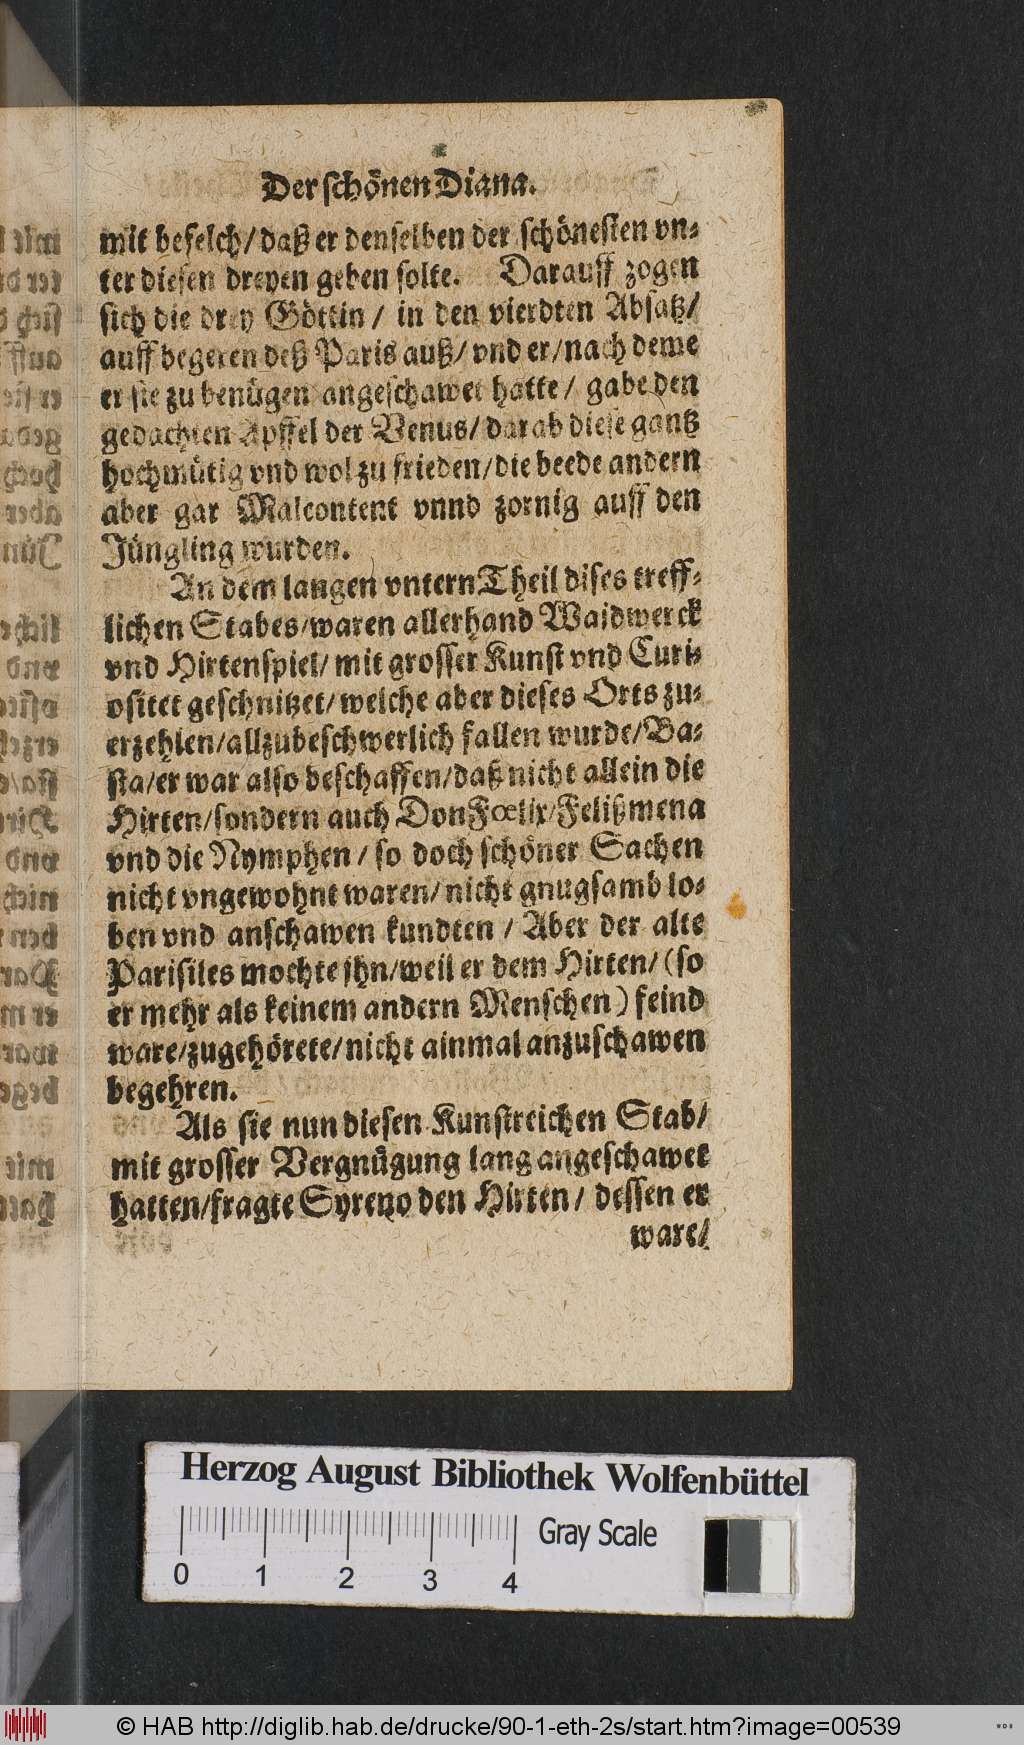 Der schönen Diana.
mit befelch/ daß er denselben der schönesten vn-
ter diesen dreyen geben solte. Darauff zogen
sich die drey Göttin/ in den vierdten Absatz/
auff begeren deß Paris auß/ vnd er/ nach deme
er sie zu benügen angeschawet hatte/ gabe den
gedachten Apffel der Venus/ darab diese gantz
hochmütig vnd wol zu frieden/ die beede andern
aber gar Malcontent vnnd zornig auff den
Jüngling wurden.
An dem langen vntern Theil dises treff-
lichen Stabes/ waren allerhand Waidwerck
vnd Hirtenspiel/ mit grosser Kunst vnd Curi-
ositet geschnitzet/ welche aber dieses Orts zu-
erzehlen/ allzubeschwerlich fallen wurde/ Ba-
sta/ er war also beschaffen/ daß nicht allein die
Hirten/ sondern auch Don Fœlix/ Felißmena
vnd die Nymphen/ so doch schöner Sachen
nicht vngewohnt waren/ nicht gnugsamb lo-
ben vnd anschawen kundten/ Aber der alte
Parisiles mochte ihn/ weil er dem Hirten/ (so
er mehr als keinem andern Menschen) feind
ware/ zugehörete/ nicht ainmal anzuschawen
begehren.
Als sie nun diesen Kunstreichen Stab/
mit grosser Vergnügung lang angeschawet
hatten/ fragte Syreno den Hirten/ dessen er
ware/
Herzog August Bibliothek Wolfenbüttel
0 1 2 3 4 Gray Scale
© HAB http://diglib.hab.de/drucke/90-1-eth-2s/start.htm?image=00539